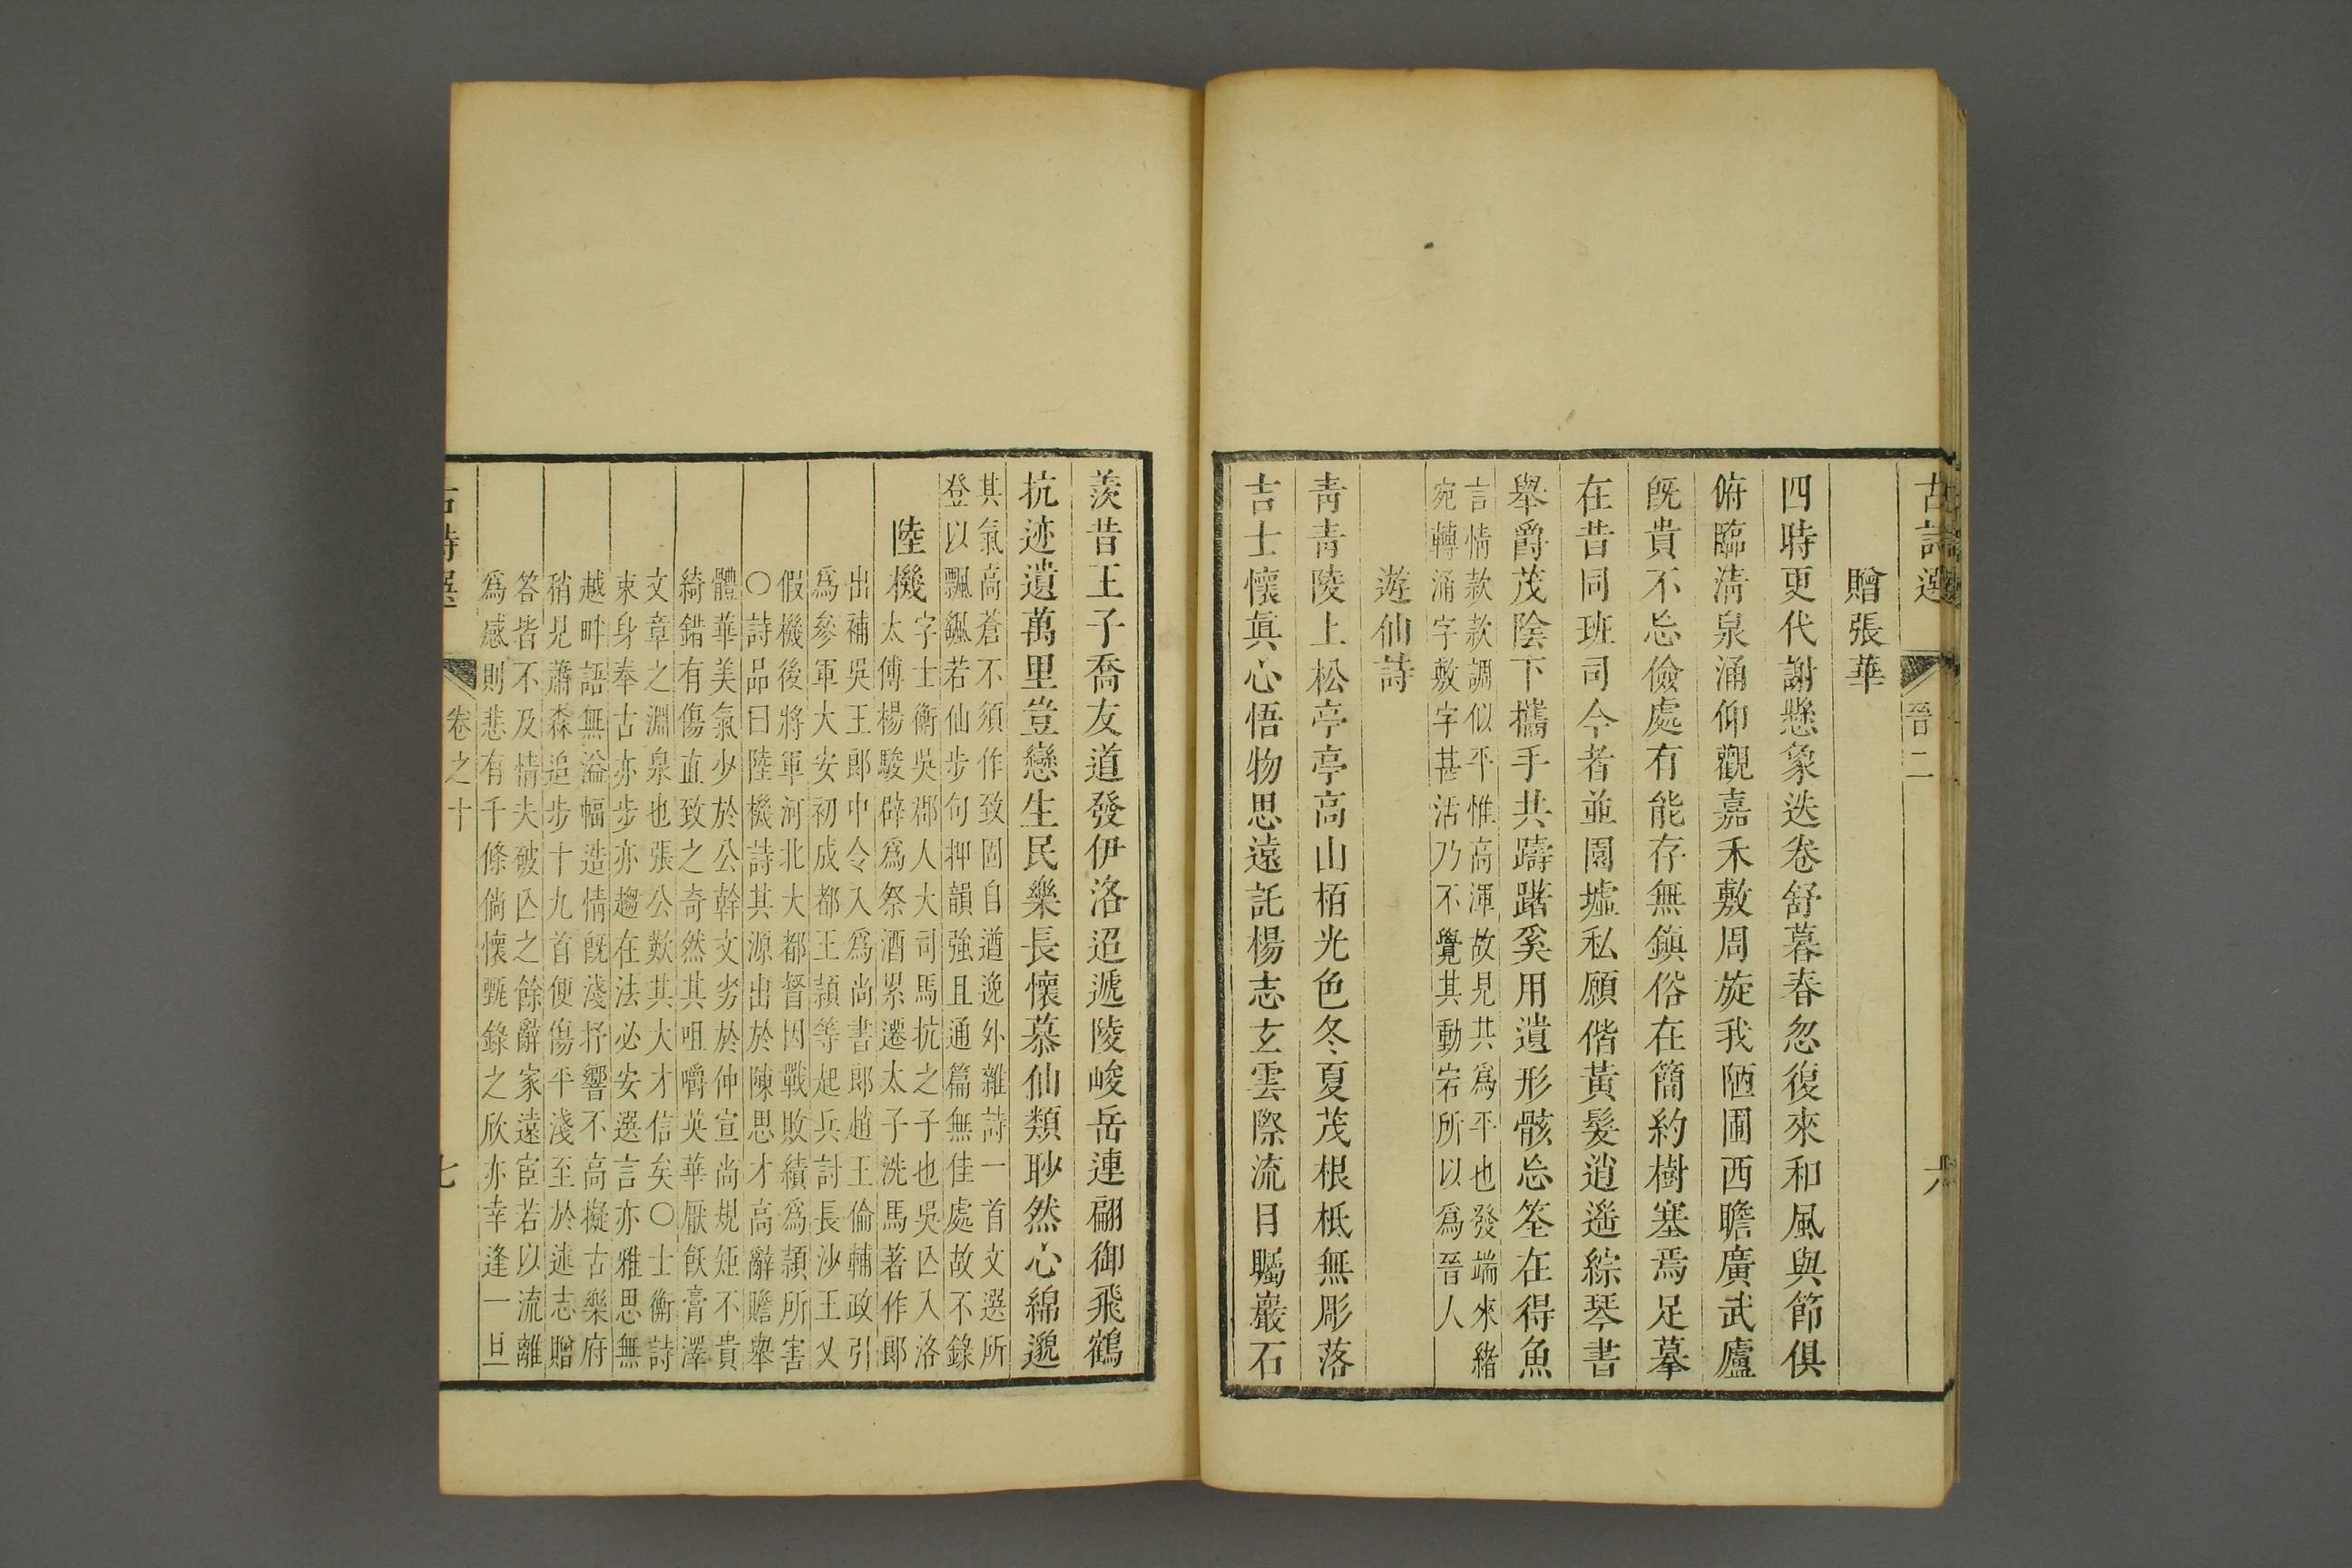 古詩選 晉二 六
贈張華
四時更代謝懸象迭卷舒暮春忽復來和風與節俱
俯臨淸泉涌仰觀嘉禾敷周旋我陋圃西瞻廣武廬
旣貴不忘儉處有能存無鎭俗在簡約樹塞焉足摹
在昔同班司今者並園墟私願偕黃髮逍遙綜琴書
舉爵茂陰下攜手共躊躇奚用遺形骸忘筌在得魚
言情款款調似平惟高渾故見其爲平也發端來緒
宛轉涌字敷字甚活乃不覺其動宕所以爲晉人
遊仙詩
靑靑陵上松亭亭高山栢光色冬夏茂根柢無彫落
吉士懷眞心悟物思遠託楊志玄雲際流目矚巖石
羨昔王子喬友道發伊洛迢遞陵峻岳連翩御飛鶴
抗迹遺萬里豈戀生民樂長懷慕仙類眇然心綿邈
其氣高蒼不須作致固自遒逸外雜詩一首文選所
登以飄飄若仙步句抑韻強且通篇無佳處故不錄
陸機
字士衡吳郡人大司馬抗之子也吳亾入洛
太傅楊駿辟爲祭酒累遷太子洗馬著作郎
出補吳王郎中令入爲尚書郎趙王倫輔政引
爲參軍大安初成都王頴等起兵討長沙王乂
假機後將軍河北大都督因戰敗績爲頴所害
○詩品曰陸機詩其源出於陳思才高辭贍舉
體華美氣少於公幹文劣於仲宣尚規矩不貴
綺錯有傷直致之奇然其咀嚼英華厭飫膏澤
文章之淵泉也張公歎其大才信矣○士衡詩
束身奉古亦步亦趨在法必安選言亦雅思無
越畔語無溢幅造情旣淺抒響不高擬古樂府
稍見蕭森追步十九首便傷平淺至於述志贈
答皆不及情夫破亾之餘辭家遠宦若以流離
爲感則悲有千條倘懷甄錄之欣亦幸逢一旦
古詩選 卷之十 七